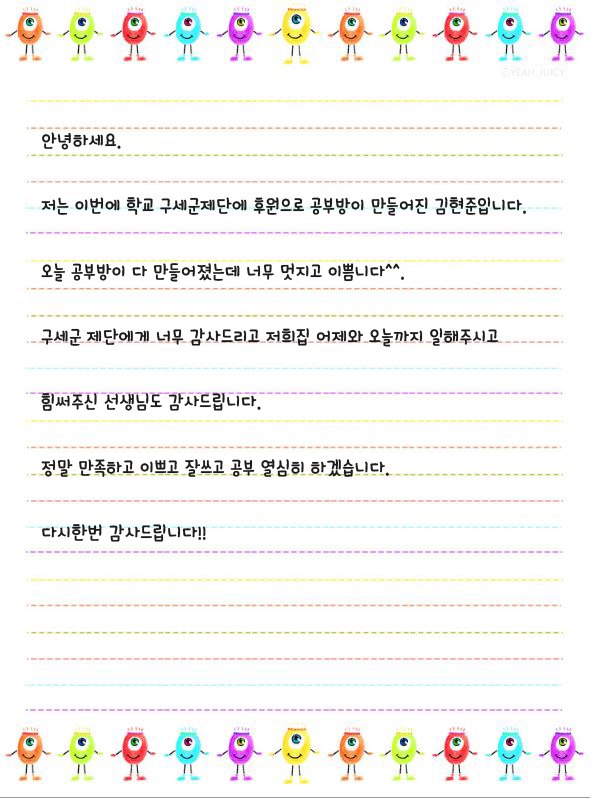 ⓒYEAH_JUICY
안녕하세요.
저는 이번에 학교 구세군제단에 후원으로 공부방이 만들어진 김현준입니다.
오늘 공부방이 다 만들어졌는데 너무 멋지고 이쁩니다^^.
구세군 제단에게 너무 감사드리고 저희집 어제와 오늘까지 일해주시고
힘써주신 선생님도 감사드립니다.
정말 만족하고 이쁘고 잘쓰고 공부 열심히 하겠습니다.
다시한번 감사드립니다!!